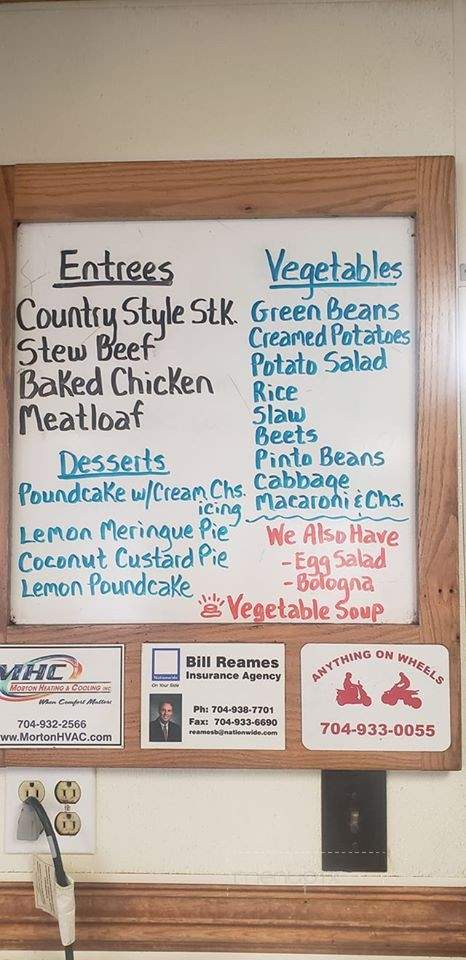 Entrees
Country Style Stk.
Stew Beef
Baked Chicken
Meatloaf
Desserts
Poundcake w/Cream Chs.
icing
Lemon Meringue Pie
Coconut Custard Pie
Lemon Poundcake
Vegetables
Green Beans
Creamed Potatoes
Potato Salad
Rice
Slaw
Beets
Pinto Beans
Cabbage
Macaroni & Chs.
We Also Have
- Egg Salad
- Bologna
Vegetable Soup
MHC
MORTON HEATING & COOLING INC
When Comfort Matters
704-932-2566
www.MortonHVAC.com
Nationwide
On Your Side
Bill Reames
Insurance Agency
Ph: 704-938-7701
Fax: 704-933-6690
reamesb@nationwide.com
ANYTHING ON WHEELS
704-933-0055